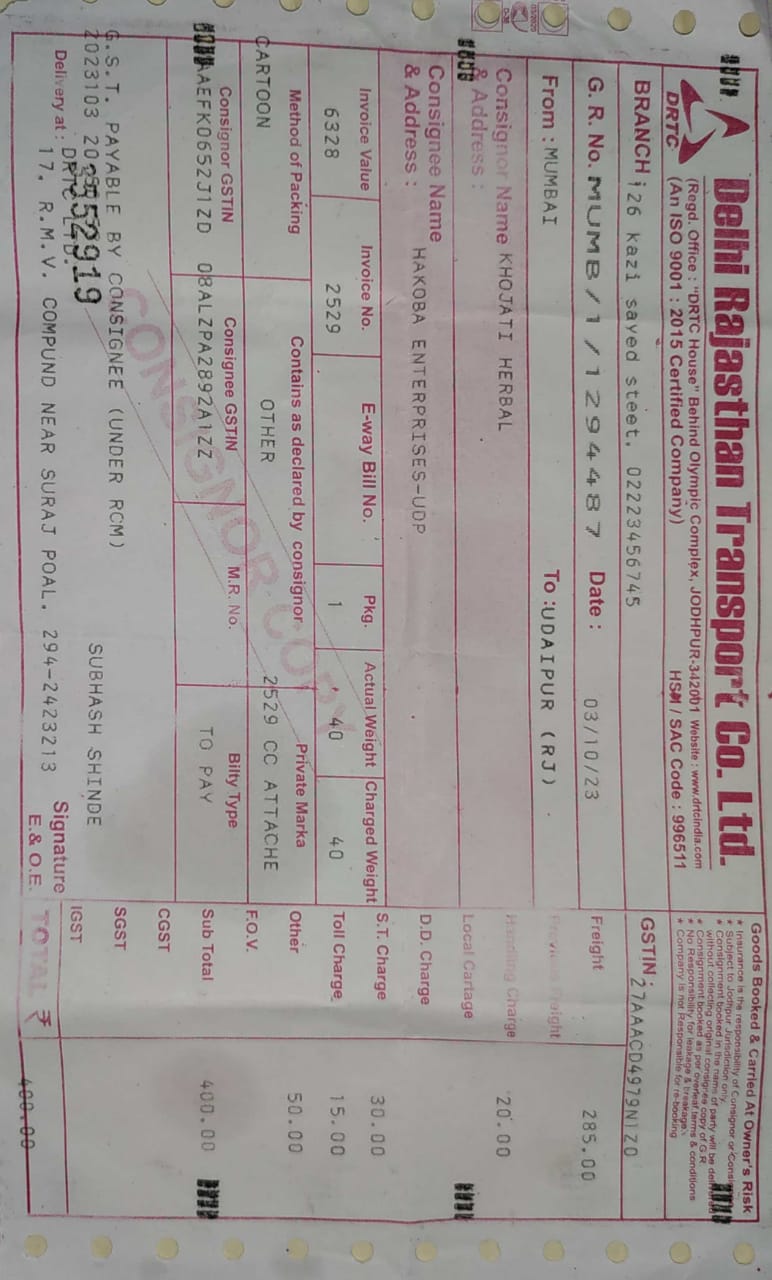 Delhi Rajasthan Transport Co. Ltd.
DRTC
(Regd. Office : "DRTC House" Behind Olympic Complex, JODHPUR-342001 Website : www.drtcindia.com
(An ISO 9001 : 2015 Certified Company) HSN / SAC Code : 996511
Goods Booked & Carried At Owner's Risk
* Insurance is the responsibility of Consignor or
* Subject to Jodhpur Jurisdiction only
* Consignment booked in the name of party will be delivered
without collecting original consignee copy of G.R.
* Consignment booked as per overleaf terms & conditions
* No Responsibility for leakage & breakage.
* Company is not Responsible for re-booking
BRANCH : 26 kazi sayed steet. 02223456745
GSTIN : 27AAACD4979N1Z0
G. R. No. MUMB/1/1294487 Date : 03/10/23
Freight 285.00
From : MUMBAI To : UDAIPUR (RJ)
Previous Freight
Consignor Name KHOJATI HERBAL
& Address :
Handling Charge 20.00
Local Cartage
Consignee Name HAKOBA ENTERPRISES-UDP
& Address :
D.D. Charge
S.T. Charge 30.00
Invoice Value Invoice No. E-way Bill No. Pkg. Actual Weight Charged Weight
6328 2529 1 40 40
Toll Charge 15.00
Method of Packing Contains as declared by consignor Private Marka
CARTOON OTHER 2529 CC ATTACHE
Other 50.00
F.O.V.
Consignor GSTIN Consignee GSTIN M.R. No. Bilty Type
AEFK0652J1ZD 08ALZPA2892A1ZZ TO PAY
Sub Total 400.00
CONSIGNOR COPY
CGST
SGST
IGST
G.S.T. PAYABLE BY CONSIGNEE (UNDER RCM)
2023103 SUBHASH SHINDE
52919
Delivery at : DRTC LTD.
17. R.M.V. COMPUND NEAR SURAJ POAL. 294-2423213
Signature
E.& O.E.
TOTAL ₹ 400.00